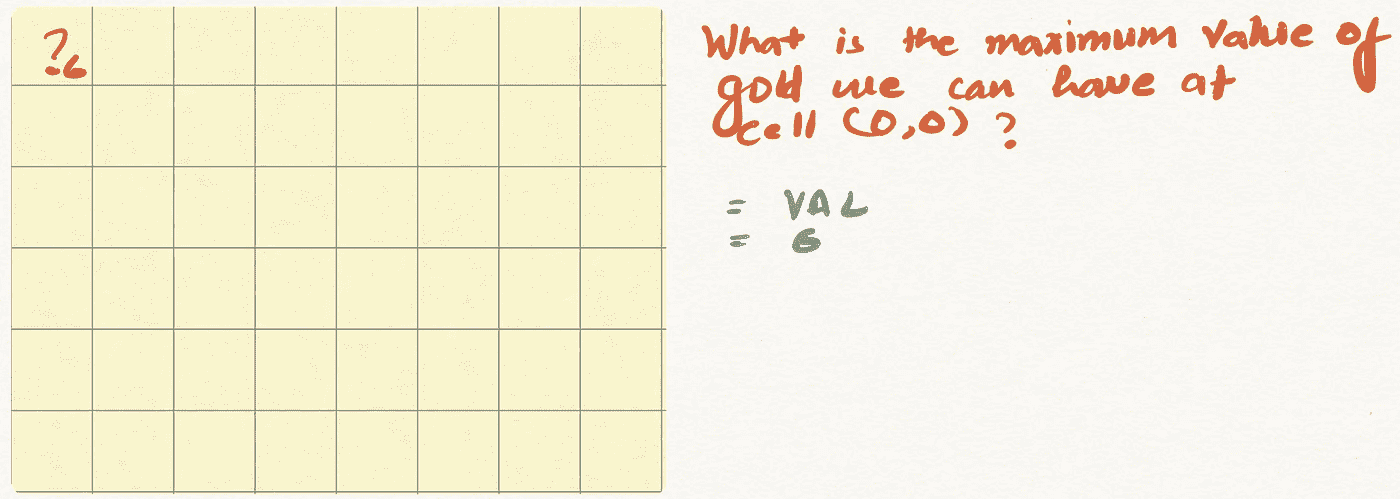 ?6
What is the maximum value of
gold we can have at
cell (0,0) ?
= VAL
= 6